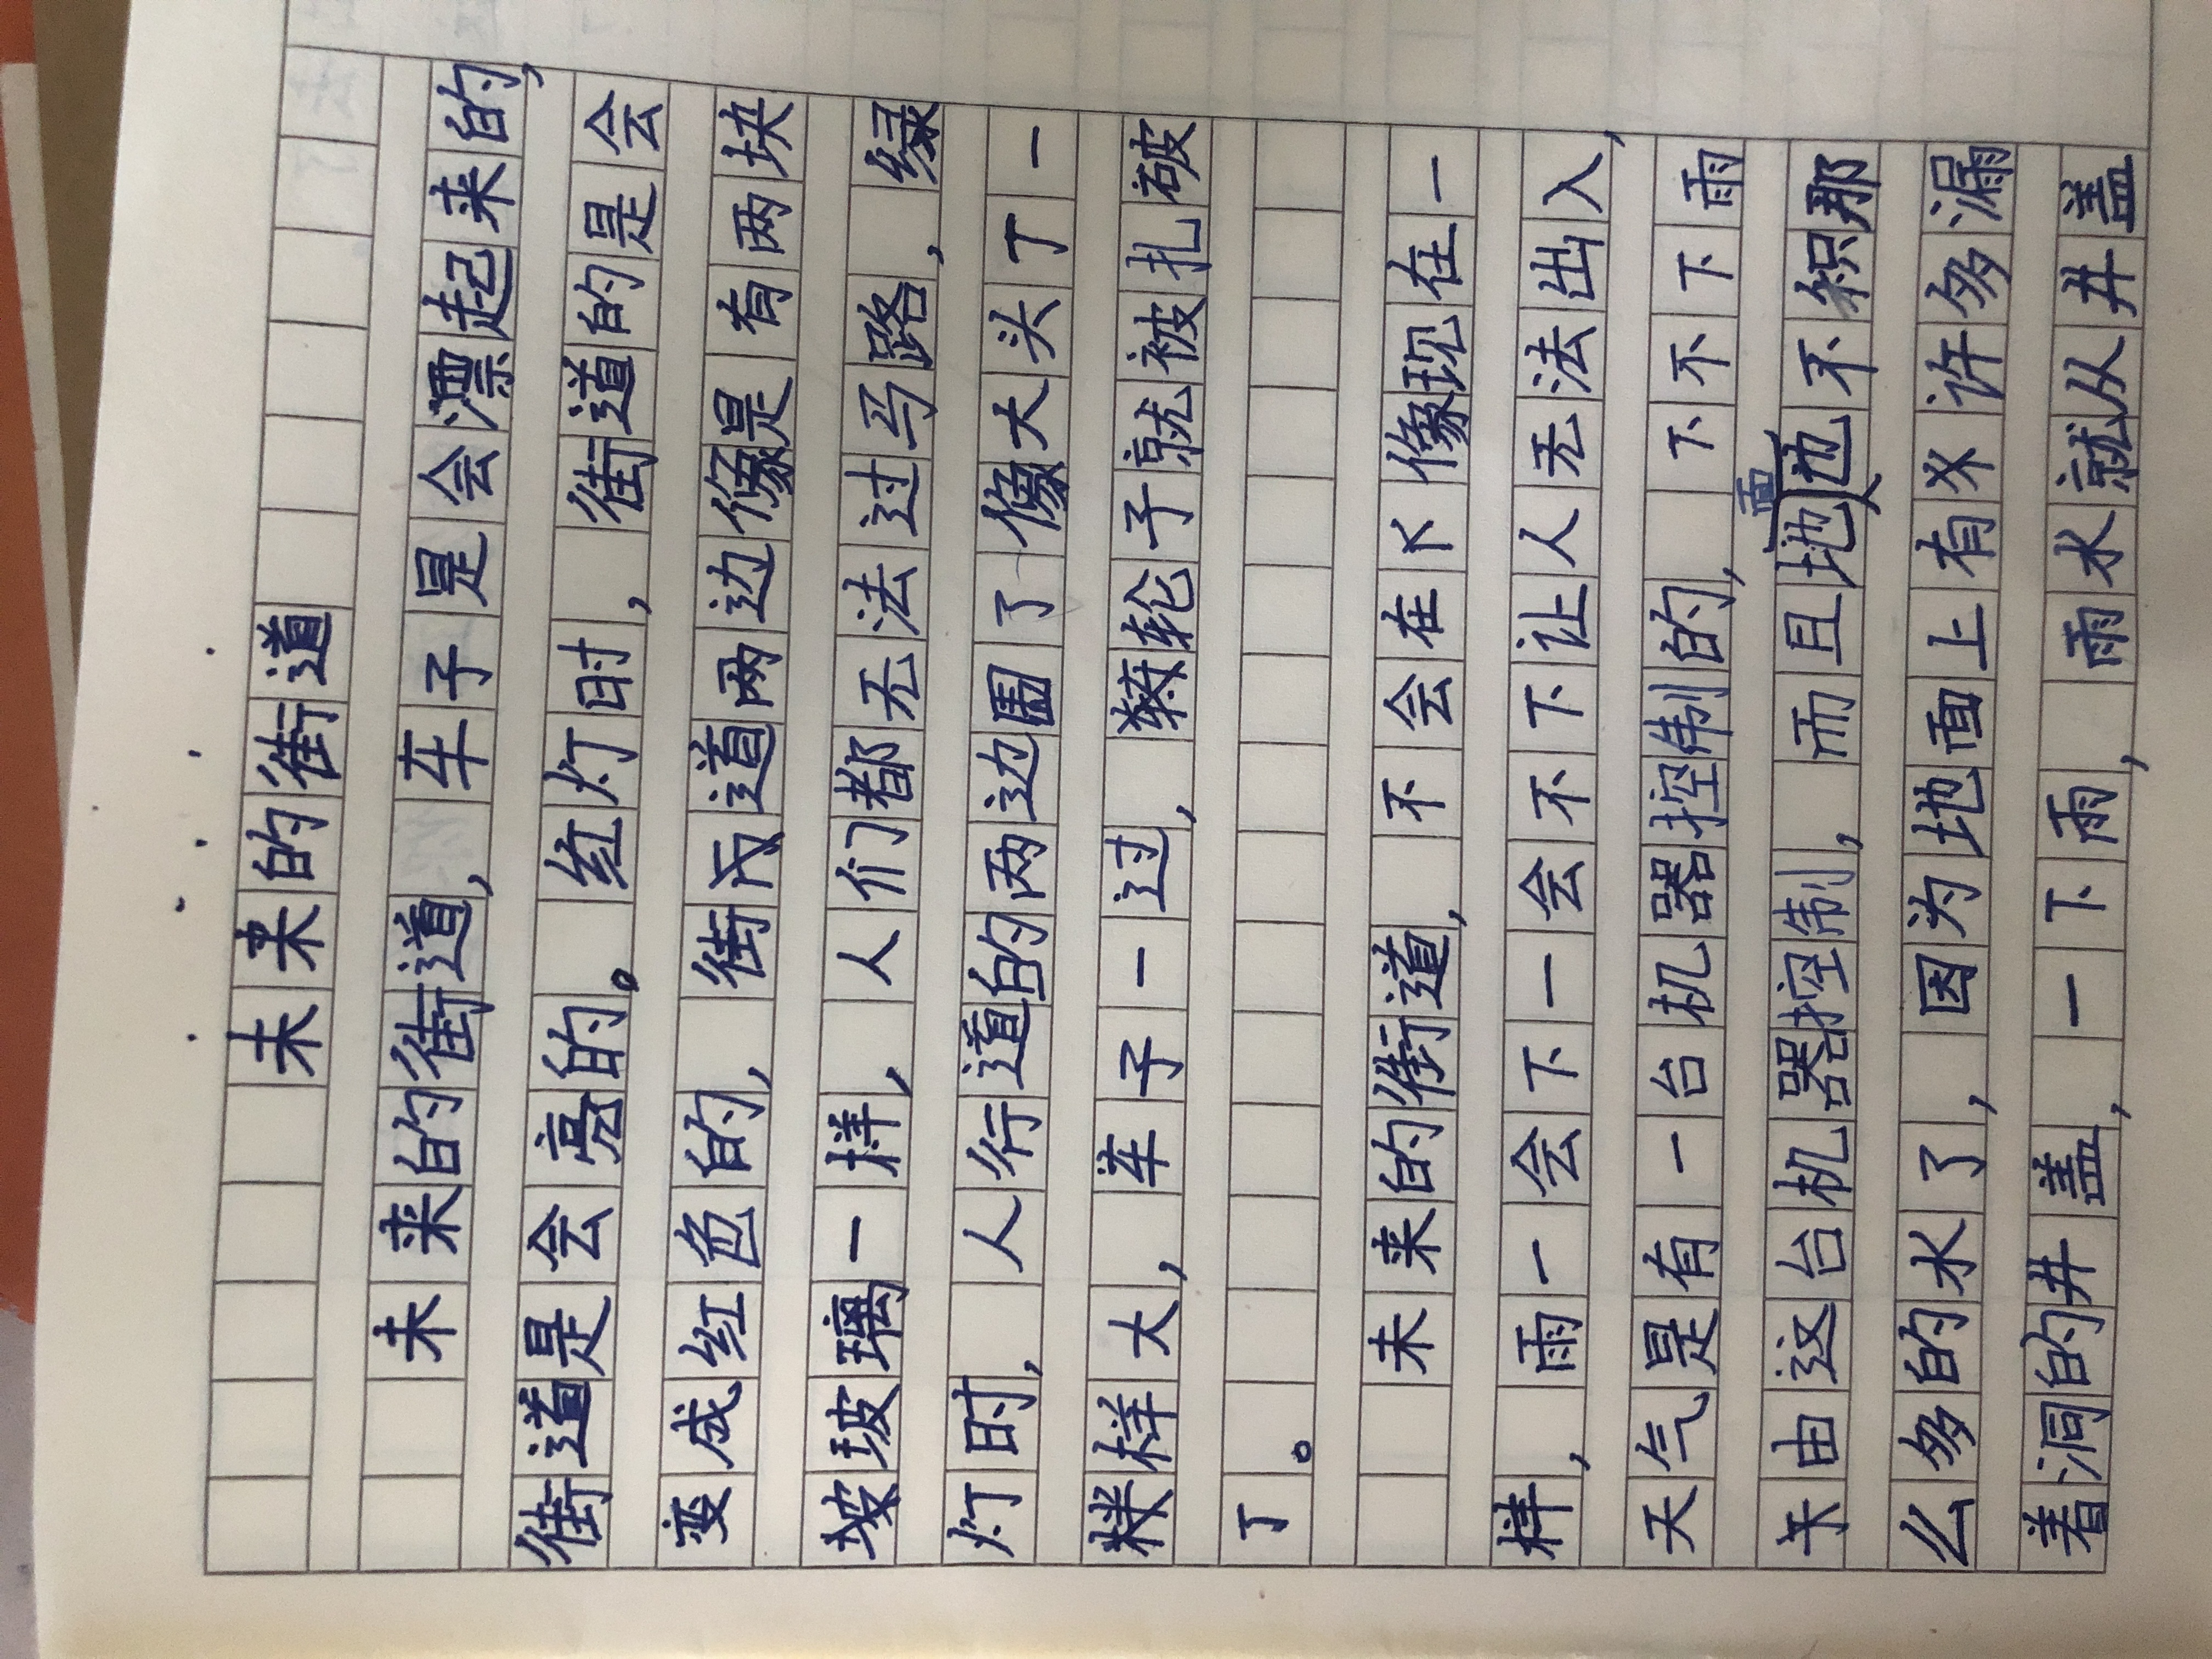 未来的街道
未来的街道,车子是会漂起来的,
街道是会亮的。红灯时,街道的是会
变成红色的,街道两边像是有两块
玻璃一样,人们都无法过马路,绿
灯时,人行道的两边围了像大头丁一
样样大,车子一过,轮子就被扎破
了。
未来的街道,不会在下像现在一
样,雨一会下一会不下让人无法出入,
天气是有一台机器控制的,下不下雨
由这台机器控制,而且地面也不积那
么多的水了,因为地面上有许多漏
着洞的井盖,一下雨,雨水就从井盖